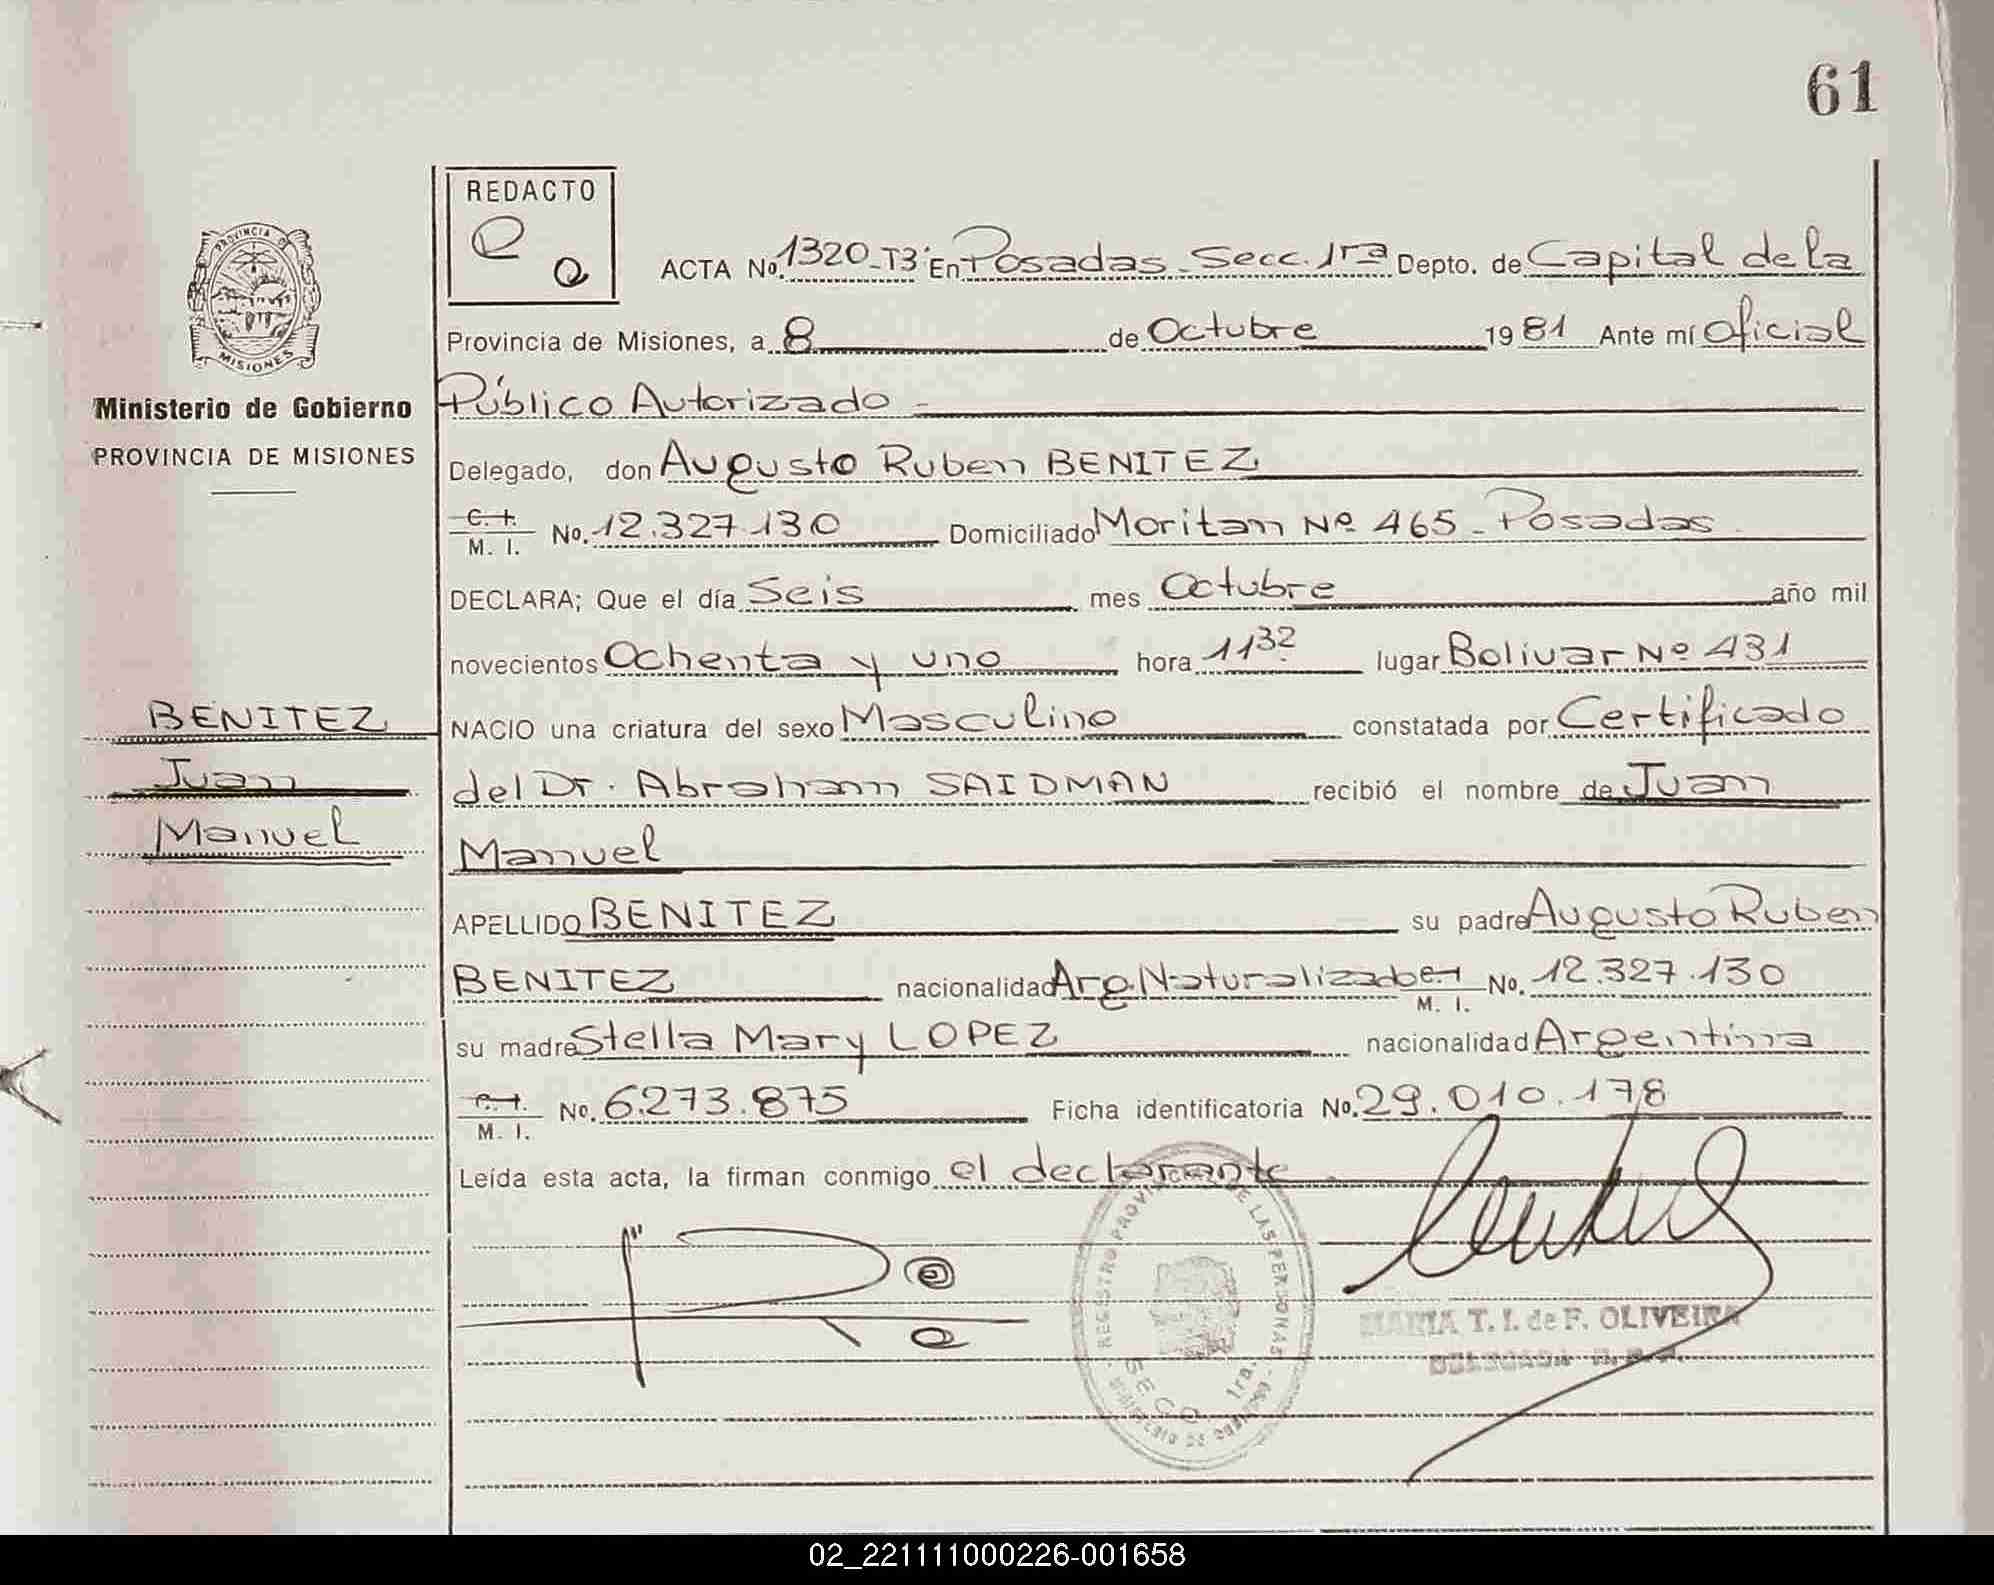 61
REDACTO
PROVINCIA DE
MISIONES
Ministerio de Gobierno
PROVINCIA DE MISIONES
BENITEZ
Juan
Manuel
ACTA No. 1320-T3º En Posadas - Secc. 1ra Depto. de Capital de la
Provincia de Misiones, a 8 de Octubre 1981 Ante mí Oficial
Público Autorizado -
Delegado, don Augusto Ruben BENITEZ
C. I. M. I. No. 12.327.130 Domiciliado Moritan Nº 465 - Posadas -
DECLARA; Que el día Seis mes Octubre año mil
novecientos Ochenta y uno hora 11 32 lugar Bolivar Nº 431
NACIO una criatura del sexo Masculino constatada por Certificado
del Dr. Abraham SAIDMAN recibió el nombre de Juan
Manuel
APELLIDO BENITEZ su padre Augusto Ruben
BENITEZ nacionalidad Arg. Naturalizado C. I. M. I. No. 12.327.130
su madre Stella Mary LOPEZ nacionalidad Argentina
C. I. M. I. No. 6.273.875 Ficha identificatoria No. 29.010.178
Leída esta acta, la firman conmigo el declarante
REGISTRO PROVINCIAL DE LAS PERSONAS
SECC. 1ra.
MINISTERIO DE GOBIERNO
MARIA T. I. de F. OLIVEIRA
DELEGADA R. P. P.
02_221111000226-001658